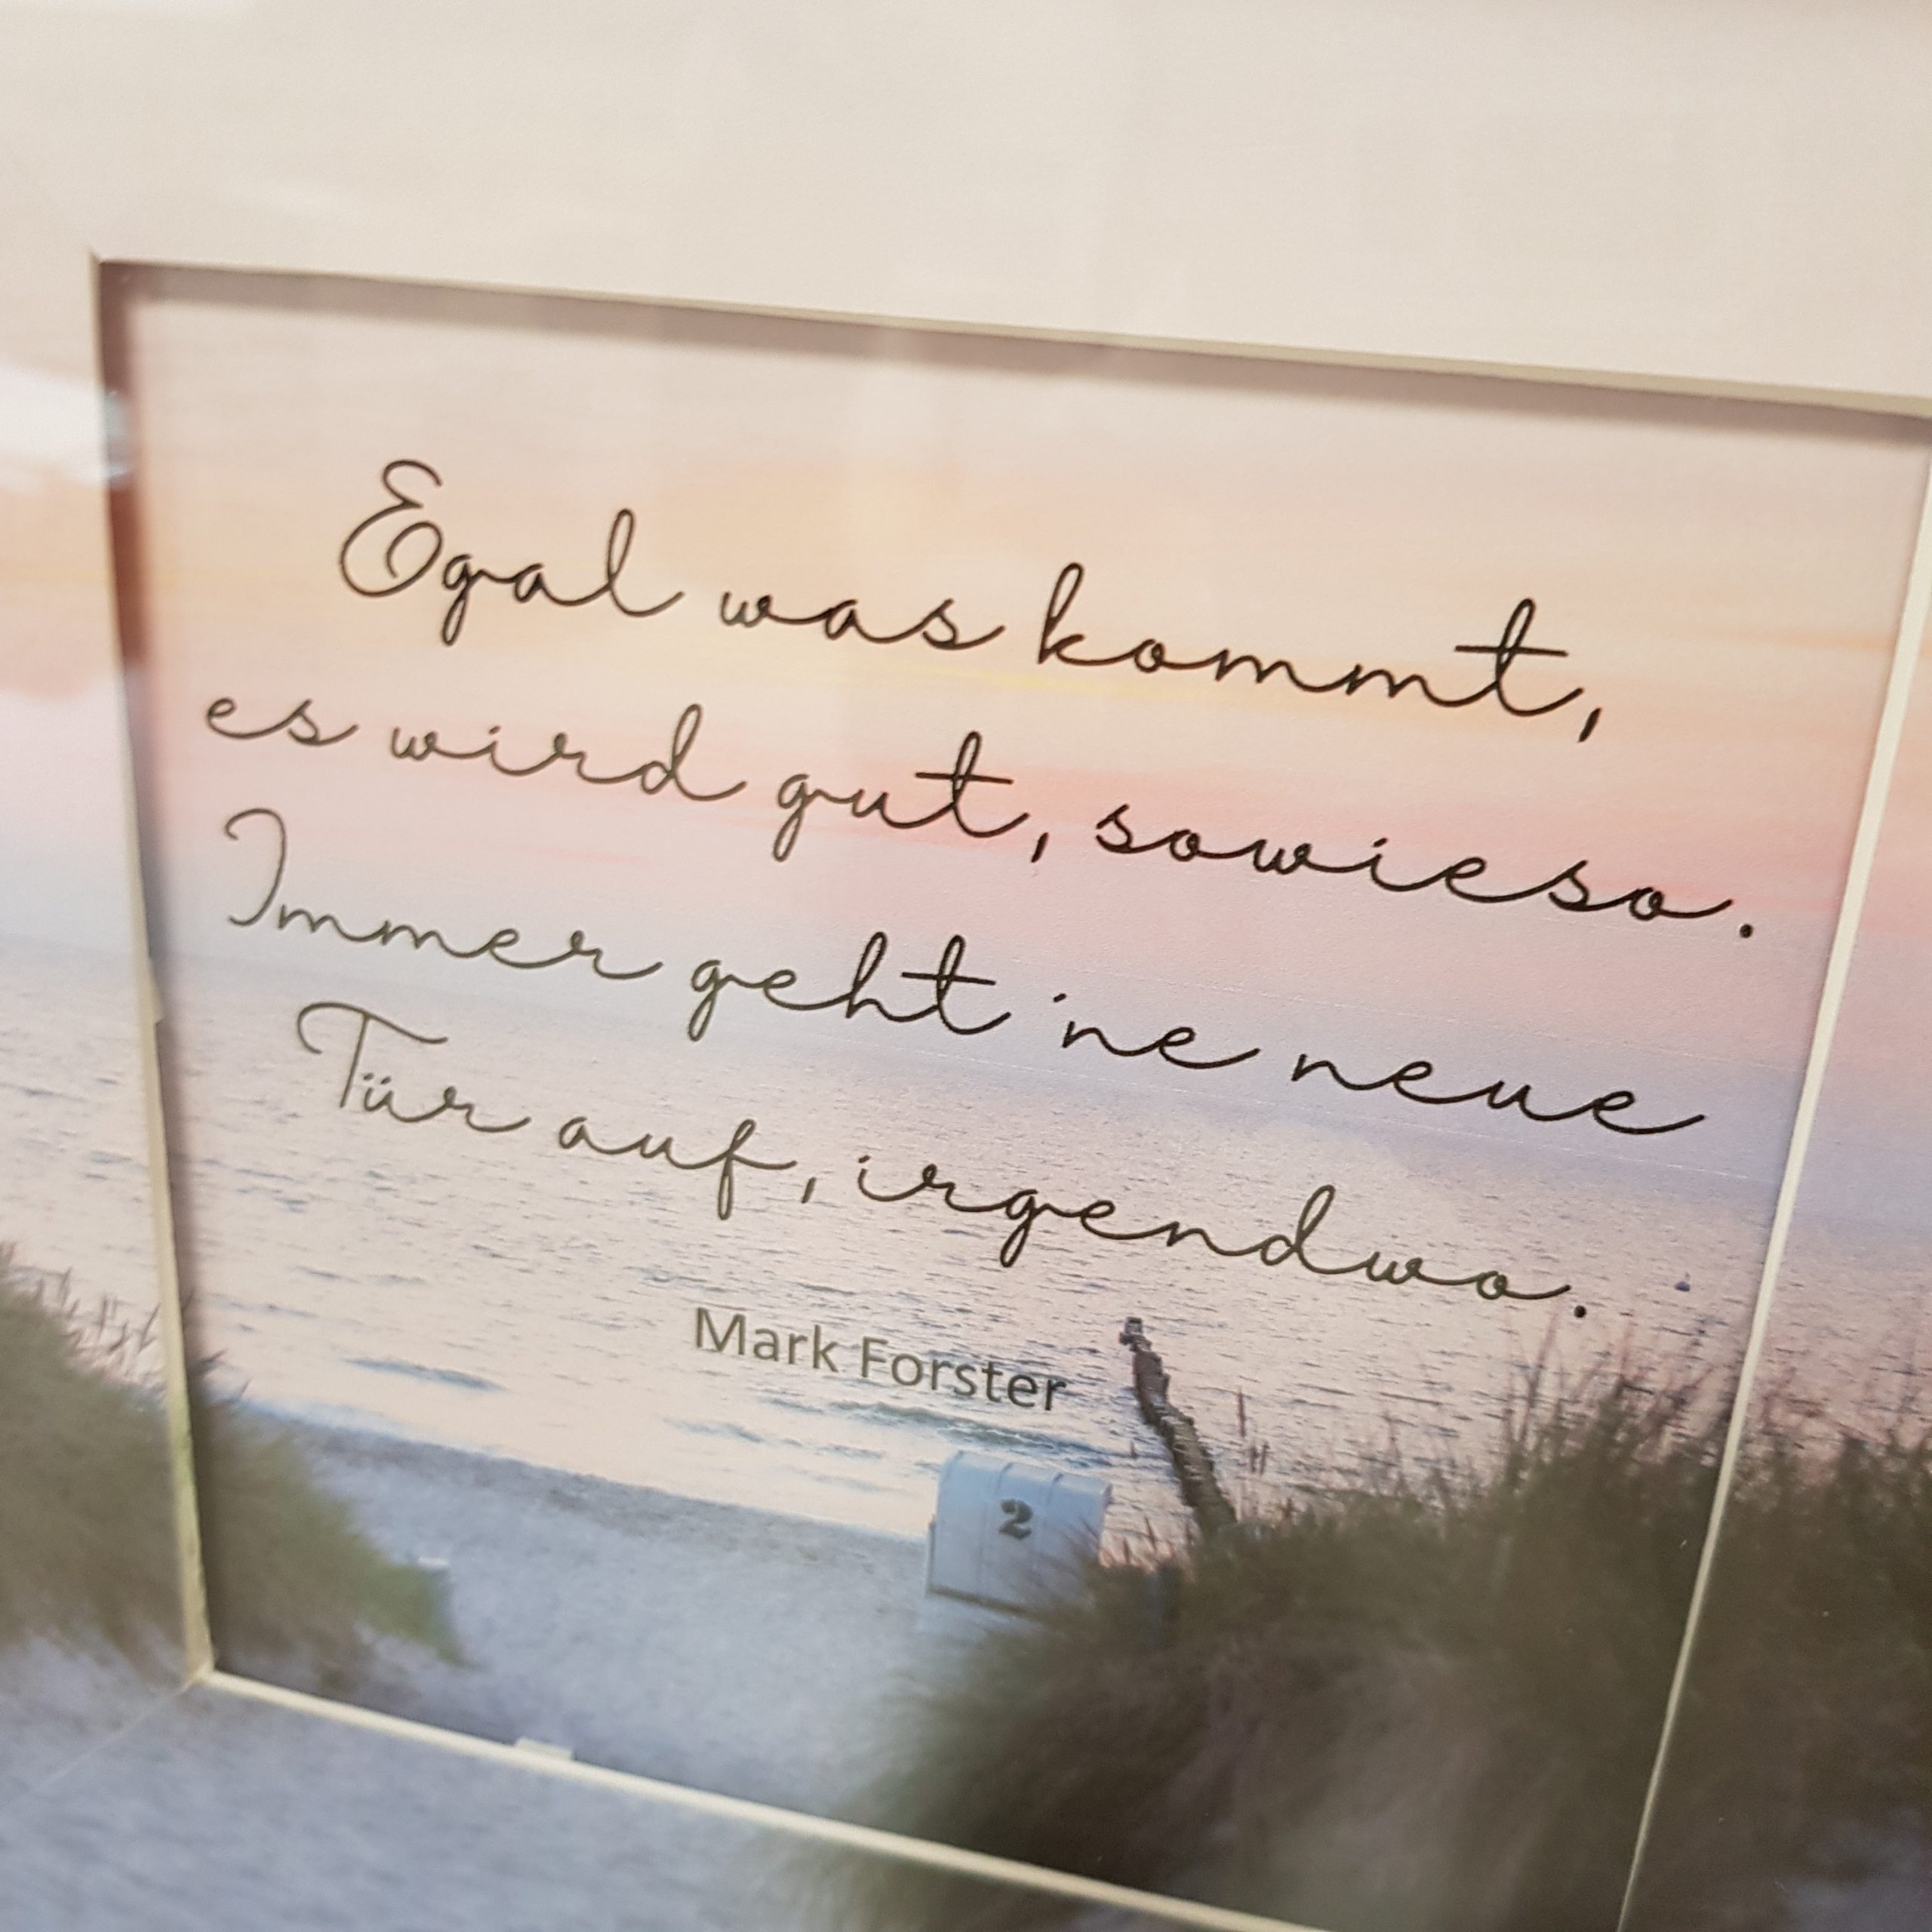 Egal was kommt,
es wird gut, sowieso.
Immer geht 'ne neue
Tür auf, irgendwo.
Mark Forster
2